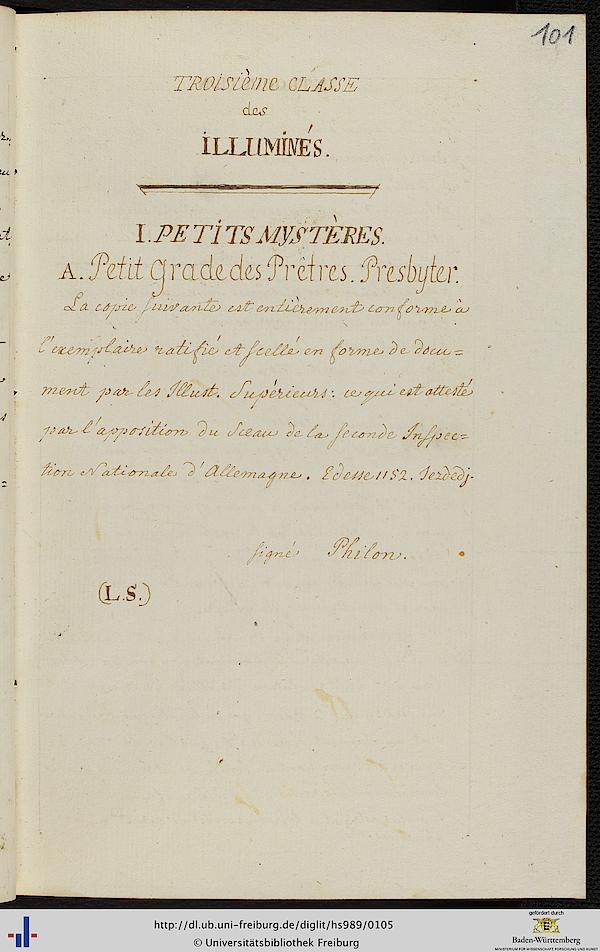 101
TROISIÈME CLASSE
des
ILLUMINÉS.
I. PETITS MYSTÈRES.
A. Petit Grade des Prêtres. Presbyter.
La copie suivante est entièrement conforme à
l'exemplaire ratifié et scellé en forme de docu=
ment par les Illust. Supérieurs: ce qui est attesté
par l'apposition du Sceau de la seconde Inspec=
tion Nationale d'Allemagne. Edesse 1152. Jezdedj.
signé Philon.
(L.S.)
http://dl.ub.uni-freiburg.de/diglit/hs989/0105
© Universitätsbibliothek Freiburg
gefördert durch
Baden-Württemberg
MINISTERIUM FÜR WISSENSCHAFT, FORSCHUNG UND KUNST